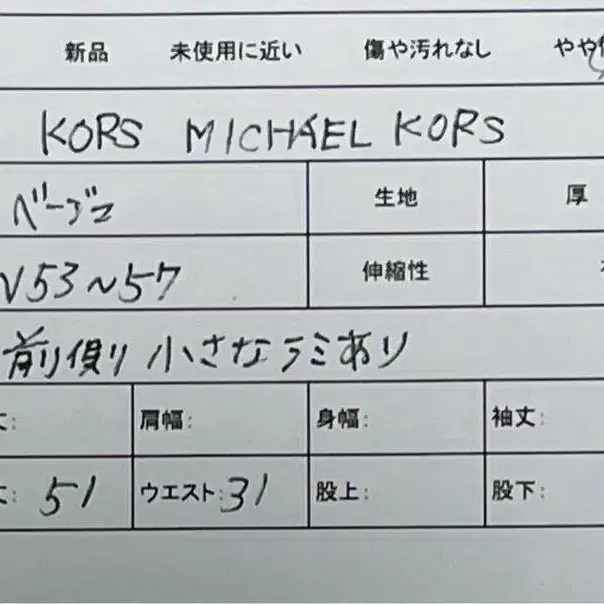 新品 未使用に近い 傷や汚れなし やや
KORS MICHAEL KORS
ベージュ 生地 厚
53~57 伸縮性
前側 小さなシミあり
丈: 肩幅: 身幅: 袖丈:
丈: 51 ウエスト:31 股上: 股下: